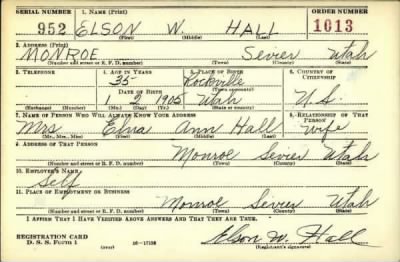 SERIAL NUMBER 1. NAME (Print) ORDER NUMBER
952 ELSON W. HALL 1613
(First) (Middle) (Last)
2. ADDRESS (Print)
MONROE Sevier Utah
(Number and street or R. F. D. number) (Town) (County) (State)
3. TELEPHONE 4. AGE IN YEARS 5. PLACE OF BIRTH 6. COUNTRY OF CITIZENSHIP
35 Rockville
DATE OF BIRTH (Town or county)
1 2 1905 Utah U.S.
(Exchange) (Number) (Mo.) (Day) (Yr.) (State or country)
7. NAME OF PERSON WHO WILL ALWAYS KNOW YOUR ADDRESS 8. RELATIONSHIP OF THAT PERSON
Mrs Elna Ann Hall Wife
(Mr., Mrs., Miss) (First) (Middle) (Last)
9. ADDRESS OF THAT PERSON
Monroe Sevier Utah
(Number and street or R. F. D. number) (Town) (County) (State)
10. EMPLOYER'S NAME
Self
11. PLACE OF EMPLOYMENT OR BUSINESS
Monroe Sevier Utah
(Number and street or R. F. D. number) (Town) (County) (State)
I AFFIRM THAT I HAVE VERIFIED ABOVE ANSWERS AND THAT THEY ARE TRUE.
REGISTRATION CARD
D. S. S. FORM 1 16-17105 Elson W. Hall
(Registrant's signature)